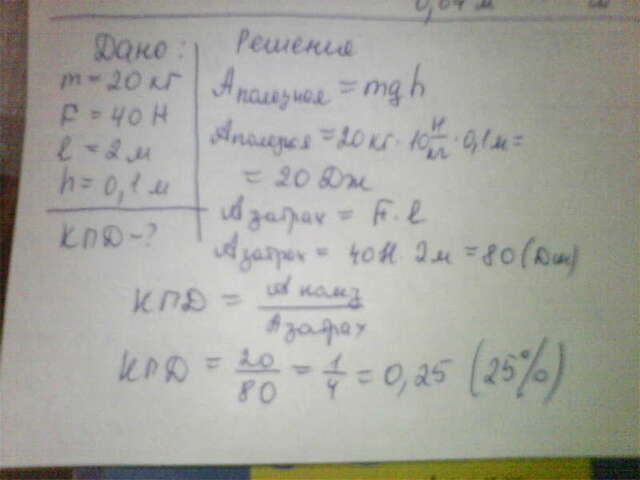 0,04 м
Дано:
m = 20 кг
F = 40 Н
l = 2 м
h = 0,1 м
КПД - ?
Решения
A полезная = mgh
A полезая = 20 кг · 10 Н/кг · 0,1 м =
= 20 Дж
A затрач = F · l
A затрач = 40 Н · 2 м = 80 (Дж)
КПД = A полз / A затрач
КПД = 20/80 = 1/4 = 0,25 (25%)